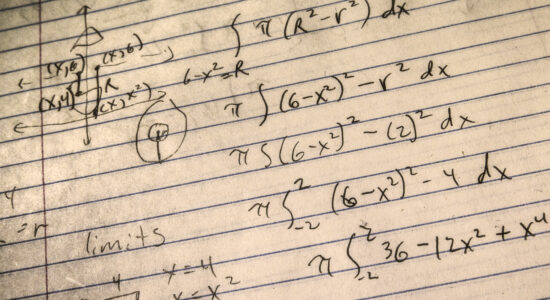 ∫ π (R² − r²) dx
(x, 6) (x, 6)
6 − x² = R
(x, 4) R (x, x²)
π ∫ (6 − x²)² − r² dx
π ∫ (6 − x²)² − (2)² dx
π ∫₋₂² (6 − x²)² − 4 dx
= r
limits
π ∫₋₂² 36 − 12x² + x⁴
4 y = 4
= x²